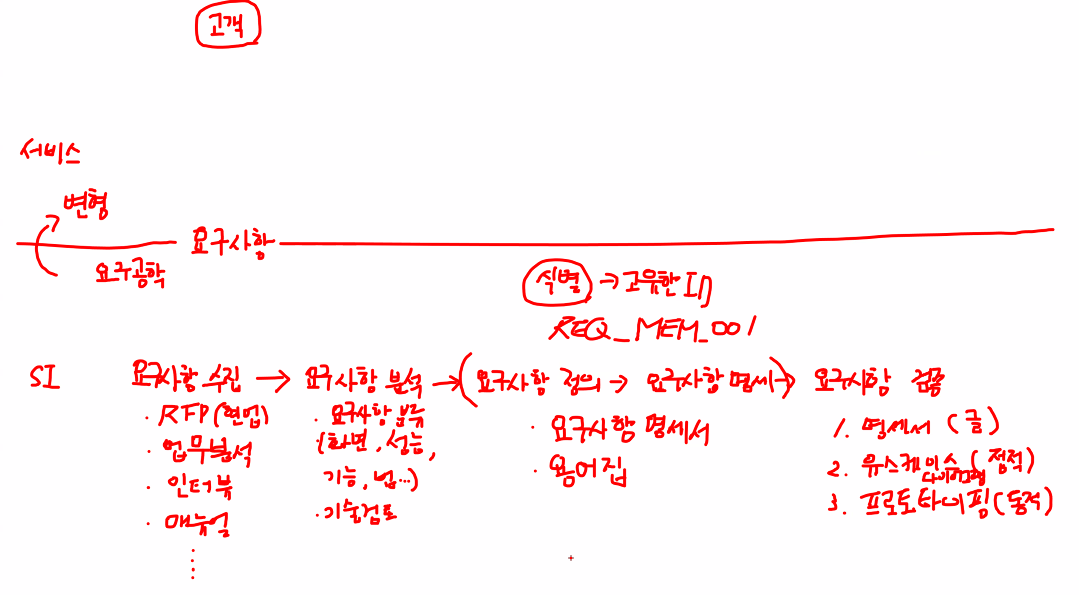 고객
서비스
변형
요구사항
요구공학
식별 → 고유한 ID
REQ_MEM_001
SI 요구사항 수집 → 요구사항 분석 → (요구사항 정의 → 요구사항 명세) → 요구사항 검증
· RFP (현업)
· 업무분석
· 인터뷰
· 매뉴얼
· 요구사항 분류
(화면, 성능,
기능, 법...)
· 기술검토
· 요구사항 명세서
· 용어집
1. 명세서 (글)
2. 유스케이스 다이어그램 (정적)
3. 프로토타이핑 (동적)